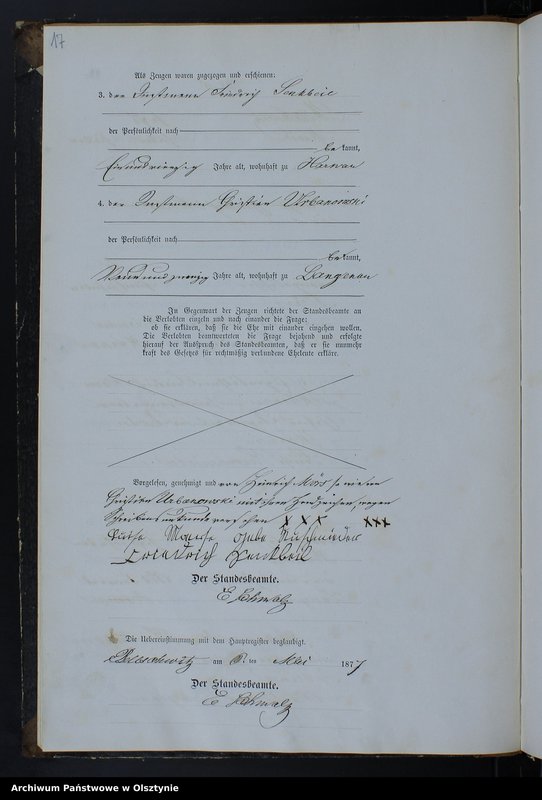 17
Als Zeugen waren zugezogen und erschienen:
3. der Instmann Friedrich Senkbeil
der Persönlichkeit nach
be kannt,
Einundvierzig Jahre alt, wohnhaft zu
4. der Instmann Christian Urbanowski
der Persönlichkeit nach
be kannt,
Neunundzwanzig Jahre alt, wohnhaft zu Langenau
In Gegenwart der Zeugen richtete der Standesbeamte an
die Verlobten einzeln und nach einander die Frage:
ob sie erklären, daß sie die Ehe mit einander eingehen wollen.
Die Verlobten beantworteten die Frage bejahend und erfolgte
hierauf der Ausspruch des Standesbeamten, daß er sie nunmehr
kraft des Gesetzes für rechtmäßig verbundene Eheleute erkläre.
Vorgelesen, genehmigt und von Heinrich Mörs sowie von
Christian Urbanowski mit ihren Handzeichen, wegen
Schreibensunkunde versehen XXX XXX
Friedrich Senkbeil
Der Standesbeamte.
E Schmalz
Die Uebereinstimmung mit dem Hauptregister beglaubigt.
am ten Mai 1877
Der Standesbeamte.
E Schmalz
Archiwum Państwowe w Olsztynie